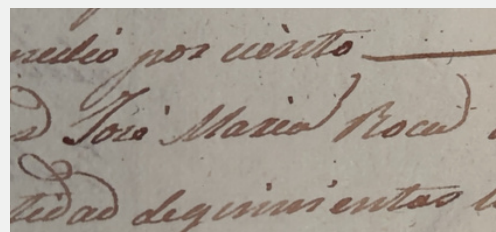 medio por ciento
Jose Maria Roca
tidad dequinientas